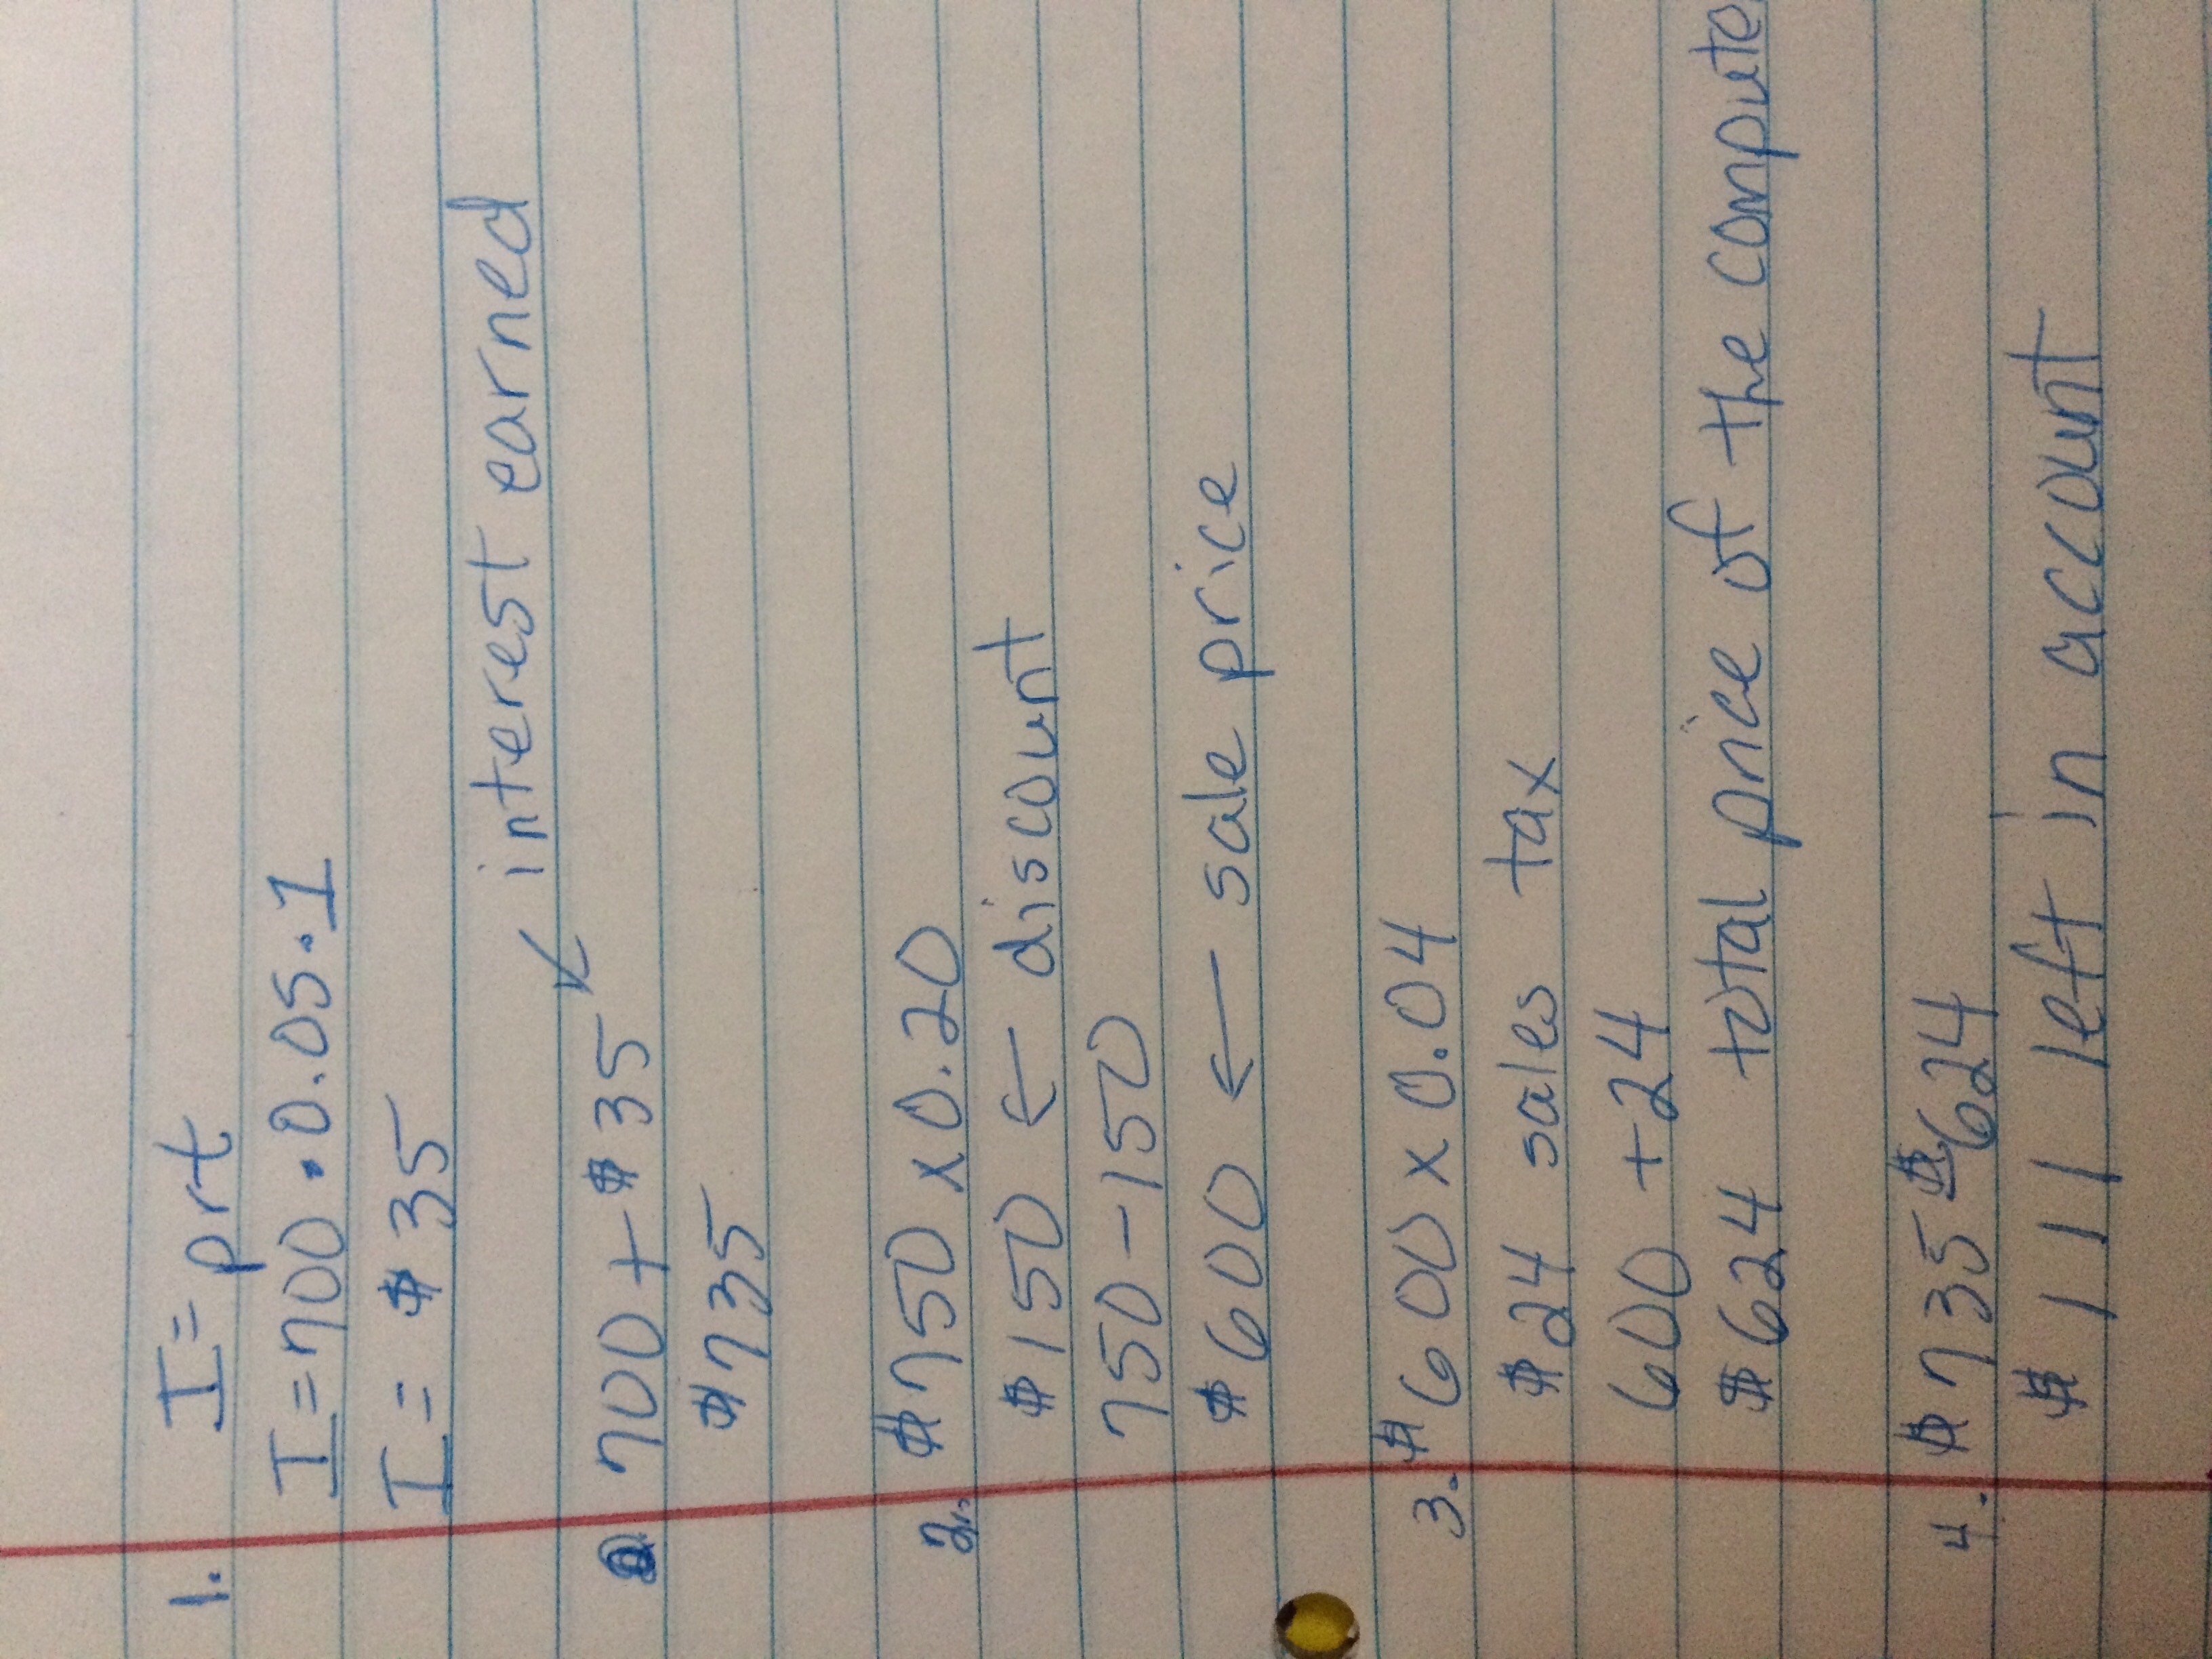 1. I = prt
I = 700 · 0.05 · 1
I = $35
interest earned
700 + $35
$735
2. $750 x 0.20
$150 ← discount
750 - 150
$600 ← sale price
3. $600 x 0.04
$24 sales tax
600 + 24
$624 total price of the compute
4. $735 $624
$111 left in account